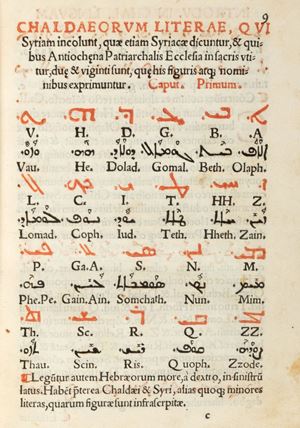 9
CHALDAEORVM LITERAE, QVI
Syriam incolunt, quæ etiam Syriacæ dicuntur, & qui-
bus Antiochena Patriarchalis Ecclesia in sacris vti-
tur, duę & viginti sunt, quę his figuris atq; nomi-
nibus exprimuntur. Caput. Primum.
ܐ ܒ ܓ ܕ ܗ ܘ
V. H. D. G. B. A.
Vau. He. Dolad. Gomal. Beth. Olaph.
ܙ ܚ ܛ ܝ ܟ ܠ
L. C. I. T. HH. Z.
Lomad. Coph, Iud. Teth. Hheth. Zain.
ܡ ܢ ܣ ܥ ܦ
P. Ga.A. S. N. M.
Phe.Pe. Gain.Ain. Somchath. Nun. Mim.
ܨ ܩ ܪ ܫ ܬ
Th. Sc. R. Q. ZZ.
Thau. Scin. Ris. Quoph. Zzode.
¶ Legũtur autem Hebræorum more, a dextro, in sinistrũ
latus. Habẽt ꝑterea Chaldæi & Syri, alias quoq; minores
literas, quarum figuræ sunt infrascriptæ.
c